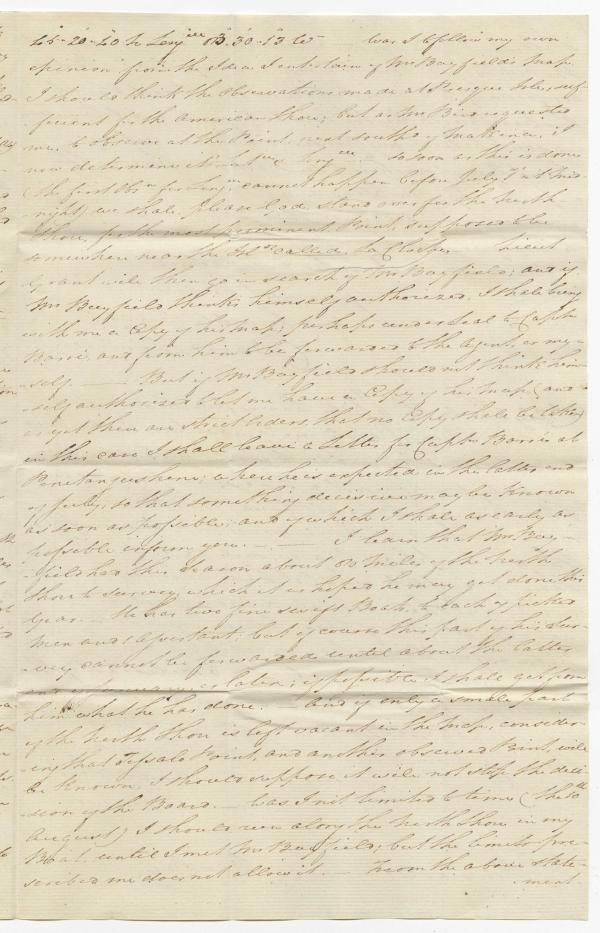 45°20'40 & Longde 83.30.13 W Was I to follow my own
opinion from the Idea I entertain of Mr Bayfield's Map
I should think the observations made at Presque Isle, suf-
-ficient for the American shore; but as Mr Bird requested
me to observe at the Point, next south of Mackinac, it
now determine its Latde & Longde. — So soon as this is done
(the first obsn for Longde cannot happen before July 7th at Mid-
night) we shall, please God, stand over for the north
shore, for the most prominent Point, supposed to be
somewhere near the Isld called La Cloche Lieut
Grant will then go in search of Mr Bayfield; and if
Mr Bayfield thinks himself authorized, I shall bring
with me a Copy of his Map; perhaps under Seal to Captn
Barrie, and from him to be forwarded to the Agent, or my-
-self. — But if Mr Bayfield should not think him-
-self authorised to let me have a Copy of his Map (and
as yet there are strict orders, that no Copy shall be taken)
in this case I shall leave a Letter for Captn Barrie at
Penetanguishene; where he is expected in the latter end
of July, so that something decisive may be known
as soon as possible; and of which I shall as early as
possible inform you. — — I learn that Mr Bay-
-field has this season about 80 Miles of the north
shore to survey, which it is hoped he may get done this
year. — He has two fine swift Boats, to each 4 picked
Men and assistant; but of course this part of his Sur-
-vey cannot be forwarded until about the latter
later; if possible I shall get from
him what he has done. — And if only a small part
of the north shore is left vacant in the Map, consider-
-ing that Point, and another observed Point, will
be known, I should suppose it will not stop the deci-
-sion of the Board. Was I not limited to time (the 10th
August) I should run along the north shore in my
Boat, until I met Mr Bayfield; but the limits pre-
-scribed me does not allow it. — From the above state-
-ment